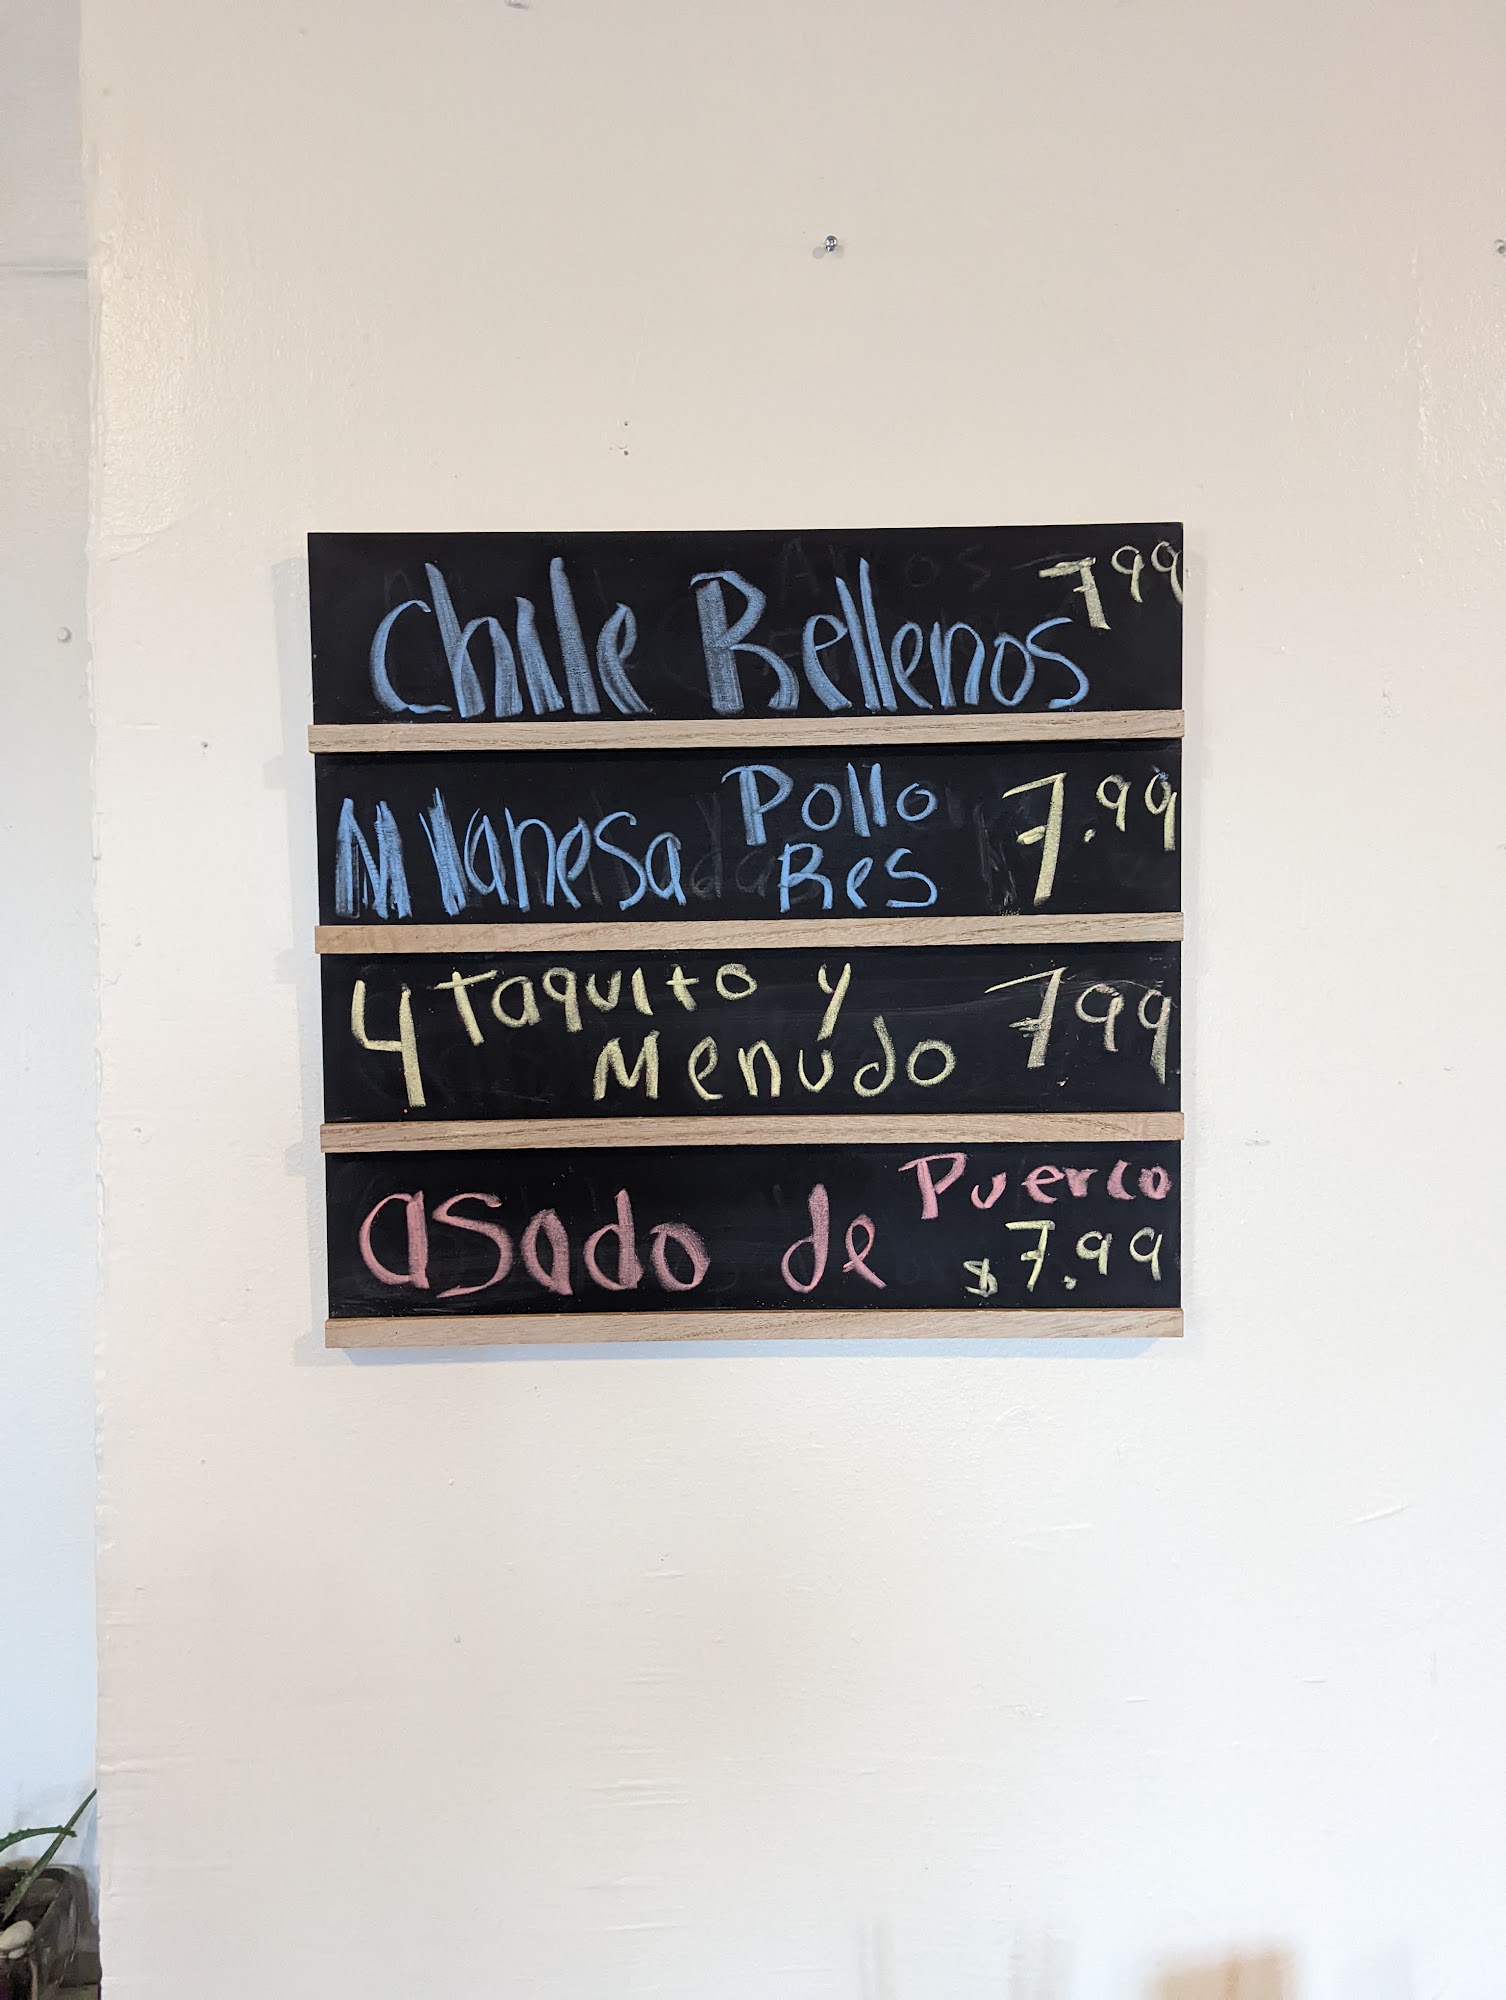 Chile Rellenos 7 99
Milanesa Pollo 7.99
Res
4 Taquito y 7 99
Menudo
asado de Puerco
$7.99